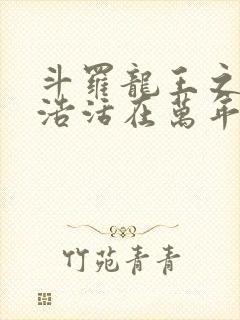 斗羅龍王之
浩活在萬年
竹苑青青